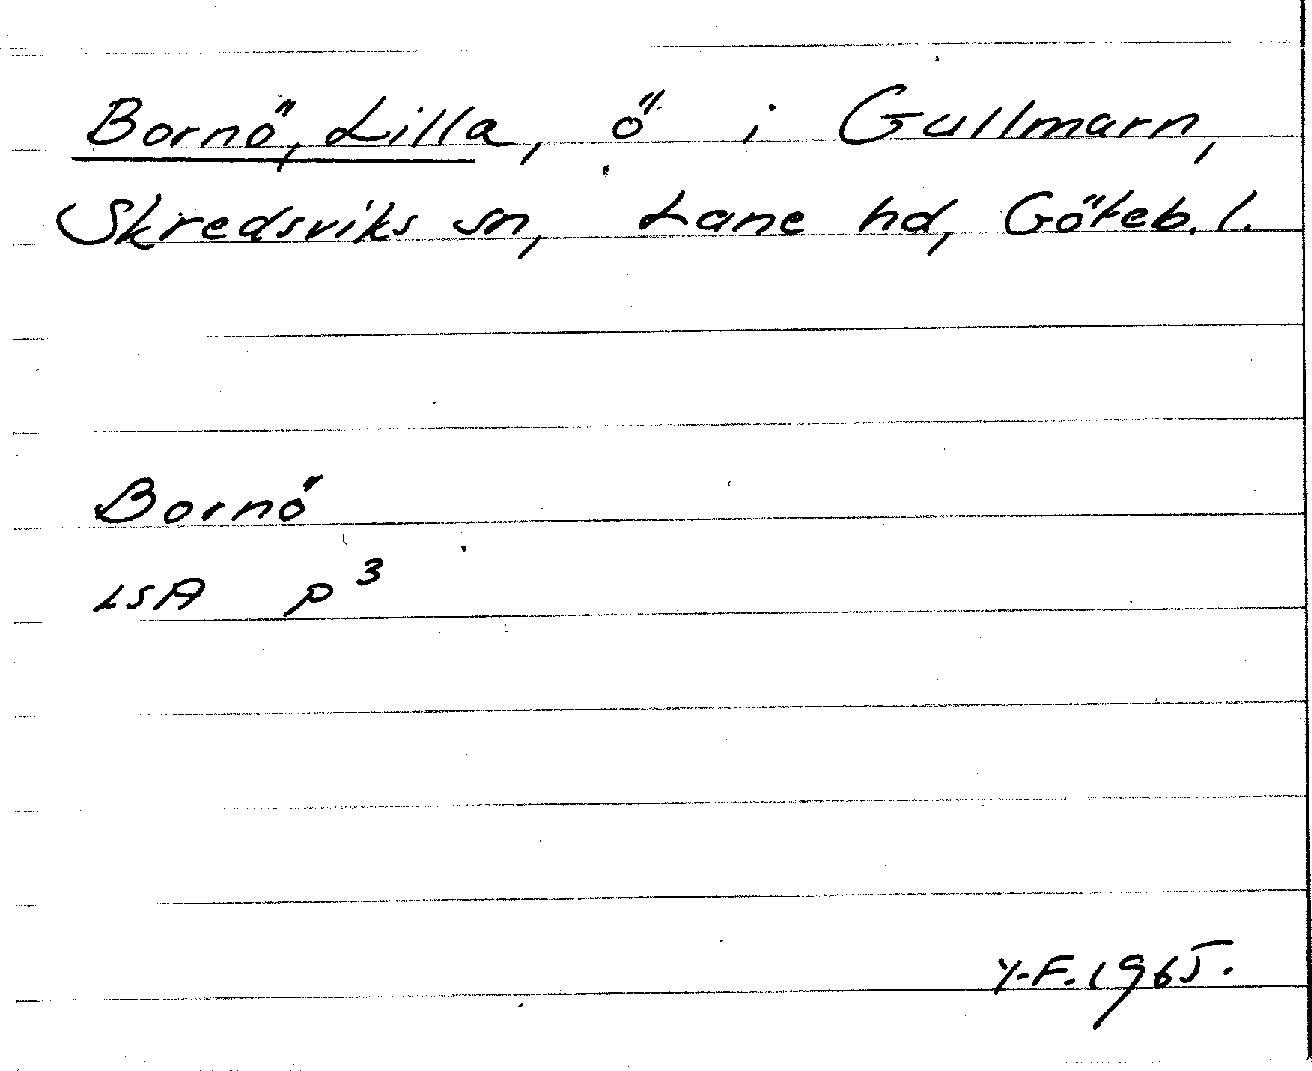 Bornö, Lilla, ö i Gullmarn,
Skredsviks sn, Lane hd, Göteb. l.
Bornö
LSA p³
Y.F. 1965.